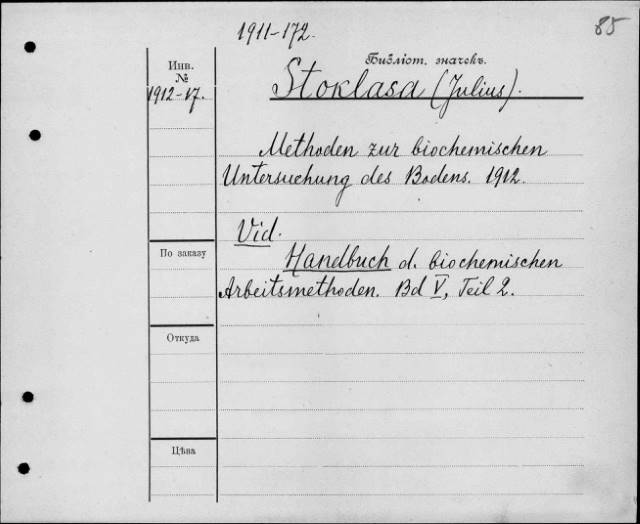 1911-172.
85
Библіот. значекъ.
Инв.
№
1912-17.
Stoklasa (Julius).
Methoden zur biochemischen
Untersuchung des Bodens. 1912.
Vid.
Handbuch d. biochemischen
Arbeitsmethoden. Bd V, Teil 2.
По заказу
Откуда
Цѣна